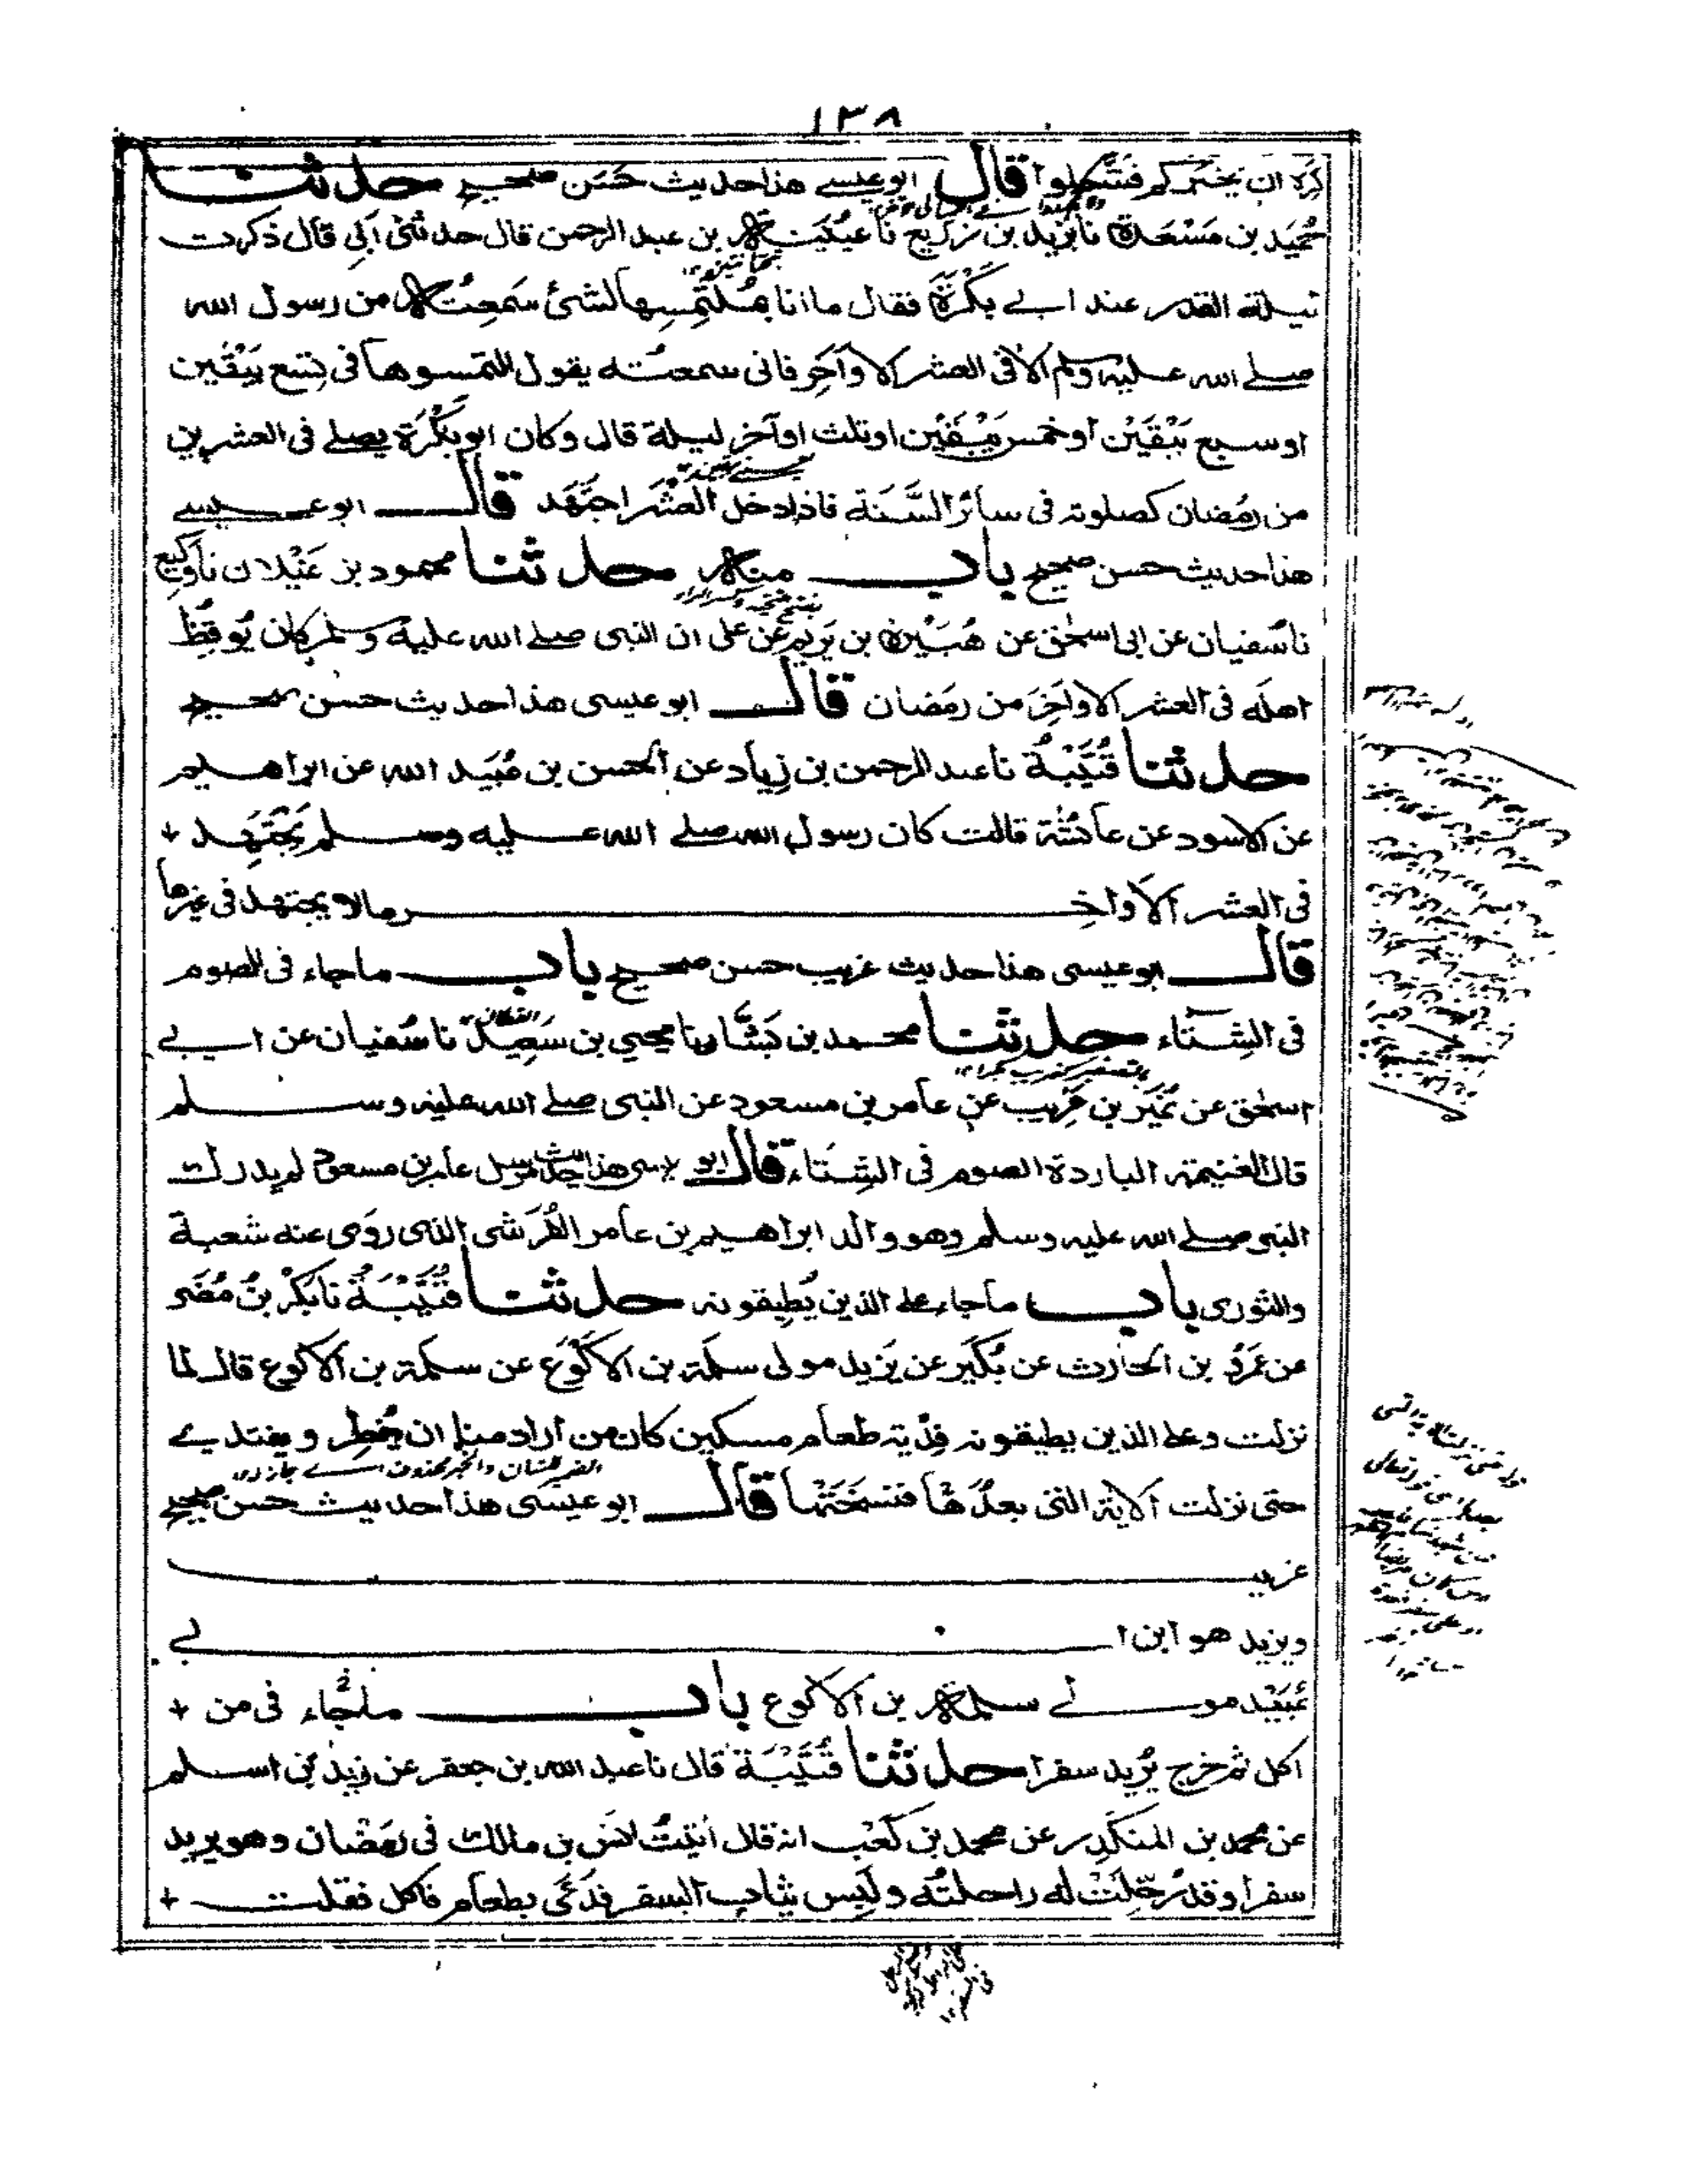 ١٣٨
كَرِهَ ان يخبركم فتتكلوا قال ابو عيسے هذا حديث حَسَن صحيح حدثنا
حُمَيد بن مَسْعَدة نا يزيد بن زُرَيع نا عُيَيْنة بن عبد الرحمن قال حدثنى اَبِي قال ذكرت
ليلة القدر عند ابے بَكْرَة فقال ما انا بمُلتَمِسِها لشئ سَمِعتُه من رسول الله
صلے الله عليه وسلم الا فى العشر الاَواخِر فانى سمعته يقول التمسوها فى تِسع يَبْقَين
او سبع يَبْقَيْن او خمس يَبْقَيْن او ثلث او آخر ليلة قال وكان ابو بَكْرَة يصلے فى العشرين
من رمضان كصلوته فى سائر السَّنَة فاذا دخل العَشْر اجتَهَد قال ابو عيسے
هذا حديث حسن صحيح باب منه حدثنا محمود بن غَيْلان نا وَكِيع
نا سُفيان عن ابى اسحٰق عن هُبَيْرة بن يَرِيم عن على ان النبى صلے الله عليه وسلم كان يُوقِظُ
اهلَه فى العشر الاواخِرَ من رمَضان قال ابو عيسى هذا حديث حسن صحيح
حدثنا قُتَيْبَة نا عبد الرحمن بن زياد عن الحسن بن عُبَيد الله عن ابراهيم
عن الاسود عن عائشة قالت كان رسول الله صلے الله عليه وسلم يَجْتَهِد
فى العشر الاَواخِر ما لا يجتهد فى غيرها
قال ابو عيسى هذا حديث غريب حسن صحيح باب ما جاء فى الصوم
فى الشِتاء حدثنا محمد بن بَشَّار نا يحيي بن سَعِيد نا سُفيان عن ابے
اسحٰق عن نُمَيْر بن عَرِيب عن عامر بن مسعود عن النبى صلے الله عليه وسلم
قال الغنيمة الباردة الصوم فى الشِتَاء قال ابو عيسى هذا حديث مرسل عامر بن مسعود لم يدرك
النبى صلے الله عليه وسلم وهو والد ابراهيم بن عامر القُرَشى الذى روَى عنه شعبة
والثورى باب ما جاء على الذين يُطِيقونه حدثنا قُتَيْبَةُ نا بَكْر بنُ مُضَر
عن عَمرو بن الحارث عن بُكَير عن يَزيد مولى سلمة بن الاَكْوَع عن سلمة بن الاكوع قال لما
نزلت وعلى الذين يطيقونه فِدْية طعام مسكين كان من اراد منا ان يُفطِر ويفتدے
الضمير للشان والخبر محذوف اے جاز
حتى نزلت الاية التى بعدَها فنسخَتْها قال ابو عيسى هذا حديث حسن صحيح
غريب
ويزيد هو ابن ابے
عُبَيْد مولے سلمة بن الاكوع باب ما جاء فى من
اكل ثم خرج يُريد سفرا حدثنا قُتَيْبَة قال نا عبد الله بن جعفر عن زيد بن اسلم
عن محمد بن المنكدِر عن محمد بن كَعْب انه قال اتيتُ انَس بن مالك فى رمَضان وهو يريد
سفرا وقد رُحِّلَتْ له راحلتُه ولَبِس ثياب السفر فدَعَى بطعام فاكل فقلت